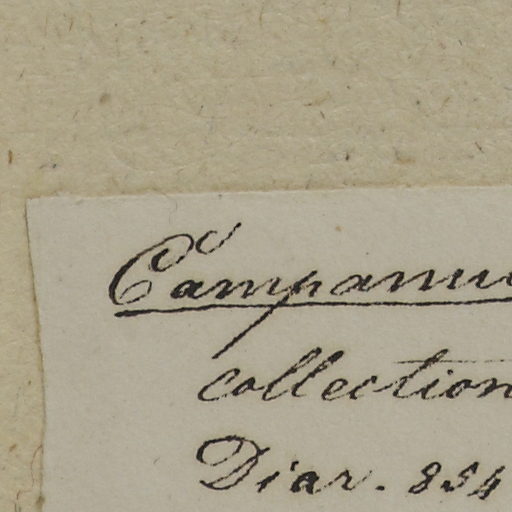 Campanu
collection
Diar. 854